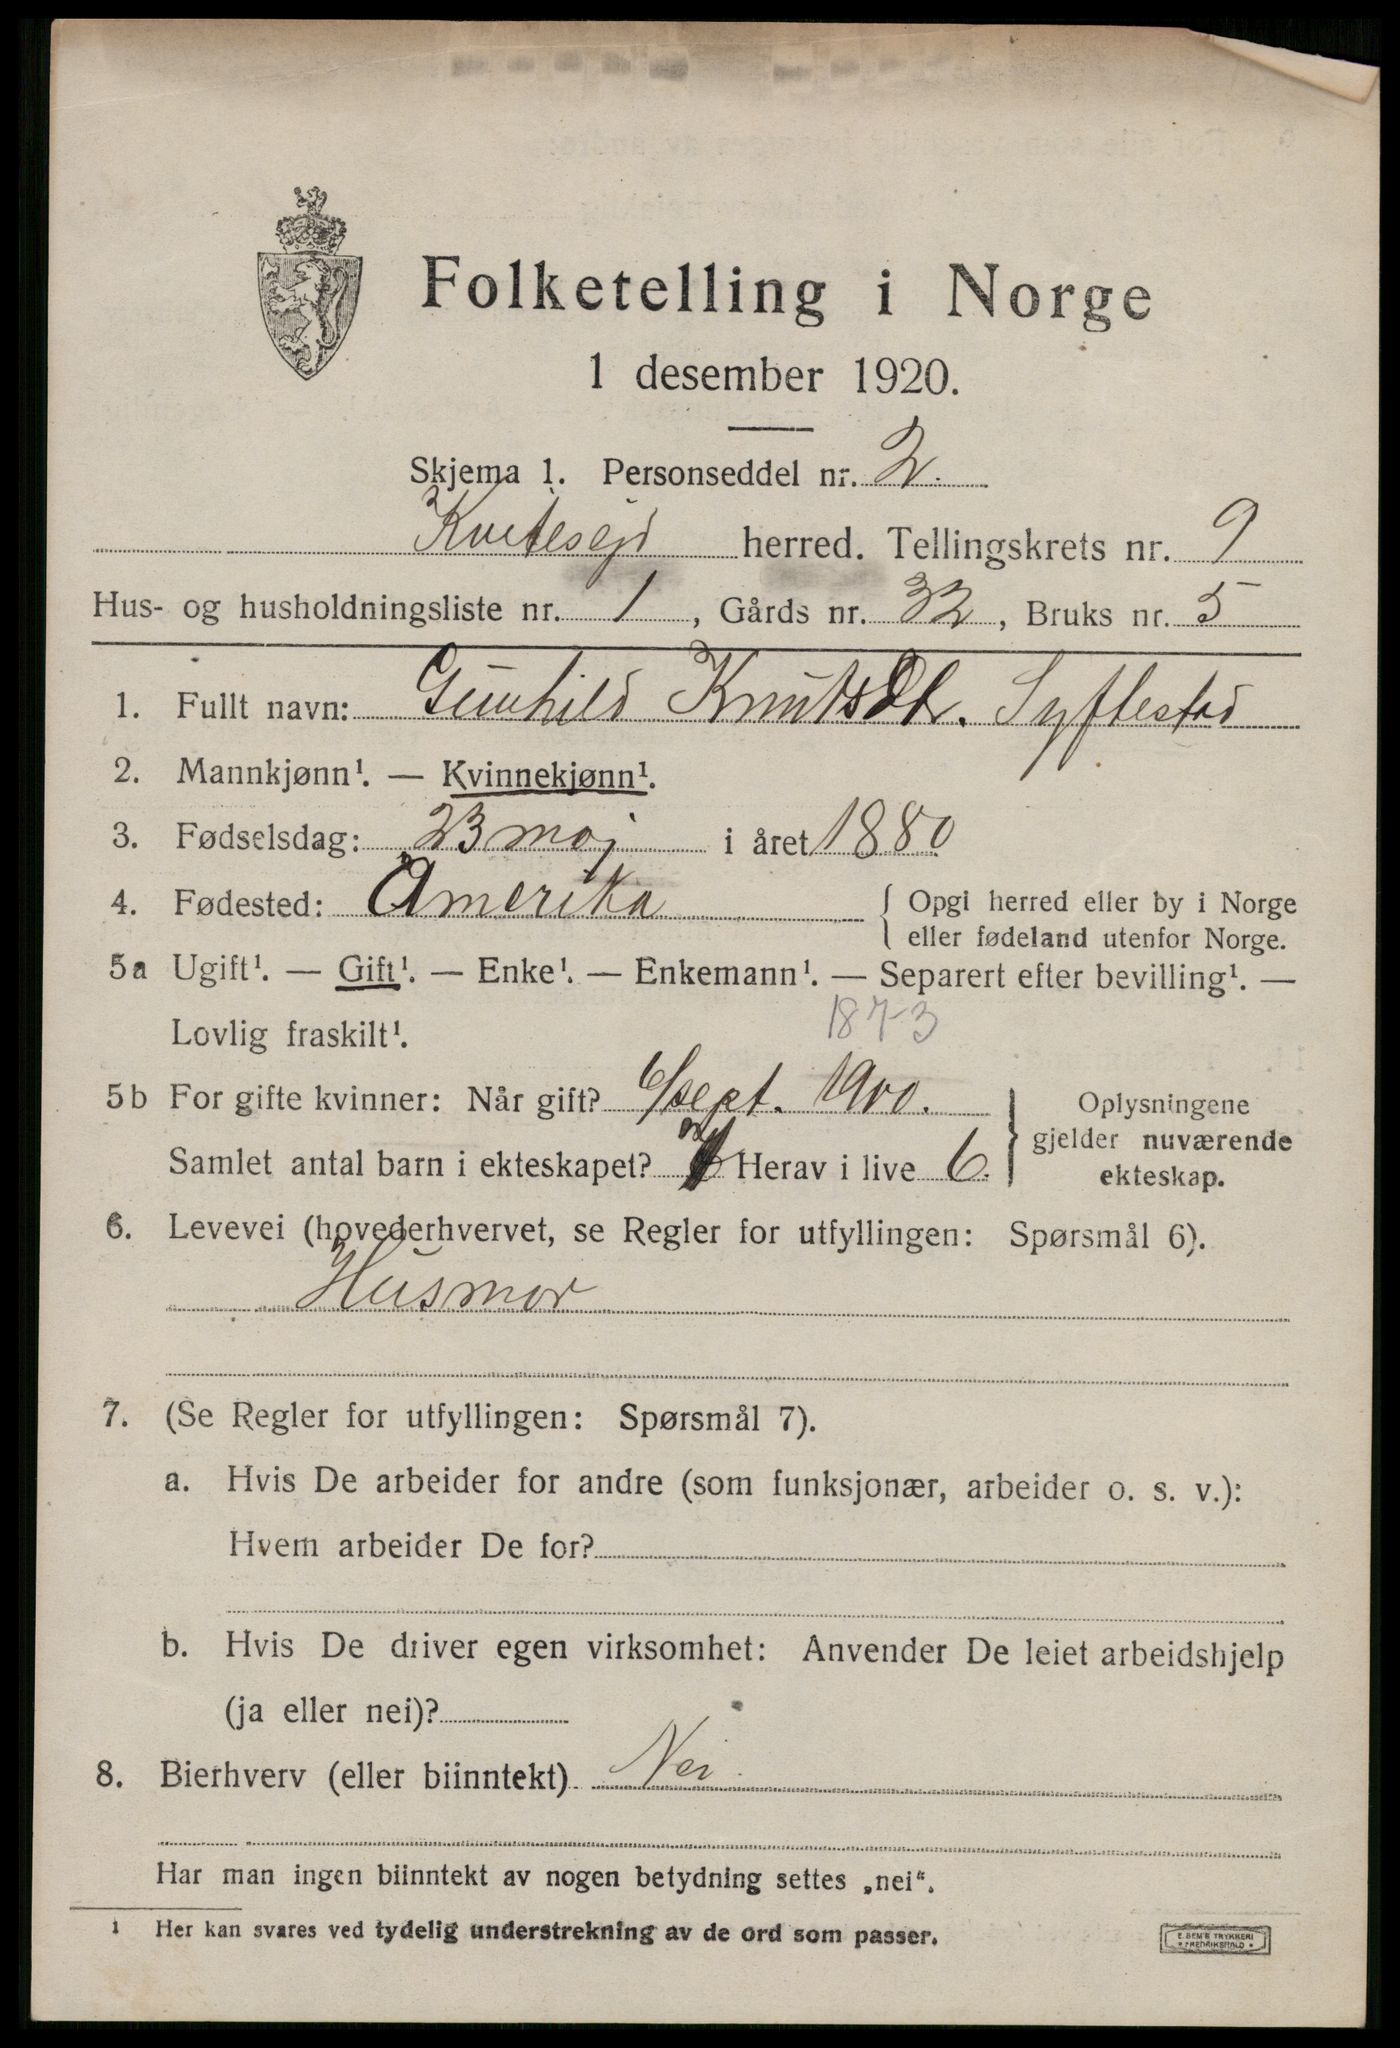 Folketelling i Norge
1 desember 1920.
Skjema 1. Personseddel nr. 2.
Kvitesejd herred. Tellingskrets nr. 9
Hus- og husholdningsliste nr. 1, Gårds nr. 32, Bruks nr. 5
1. Fullt navn: Gunhild Knutsdtr. Syftestad
2. Mannkjønn¹. — Kvinnekjønn¹.
3. Fødselsdag: 23 maj i året 1880
4. Fødested: Amerika { Opgi herred eller by i Norge
eller fødeland utenfor Norge.
5a Ugift¹. — Gift¹. — Enke¹. — Enkemann¹. — Separert efter bevilling¹. —
Lovlig fraskilt¹.
1873
5b For gifte kvinner: Når gift? 6/sept. 1900.
Samlet antal barn i ekteskapet? Herav i live 6.
} Oplysningene
gjelder nuværende
ekteskap.
6. Levevei (hovederhvervet, se Regler for utfyllingen: Spørsmål 6).
Husmor
7. (Se Regler for utfyllingen: Spørsmål 7).
a. Hvis De arbeider for andre (som funksjonær, arbeider o. s. v.):
Hvem arbeider De for?
b. Hvis De driver egen virksomhet: Anvender De leiet arbeidshjelp
(ja eller nei)?
8. Bierhverv (eller biinntekt) Nei
Har man ingen biinntekt av nogen betydning settes „nei“.
¹ Her kan svares ved tydelig understrekning av de ord som passer.
E. SEM'S TRYKKERI
* FREDRIKSHALD *